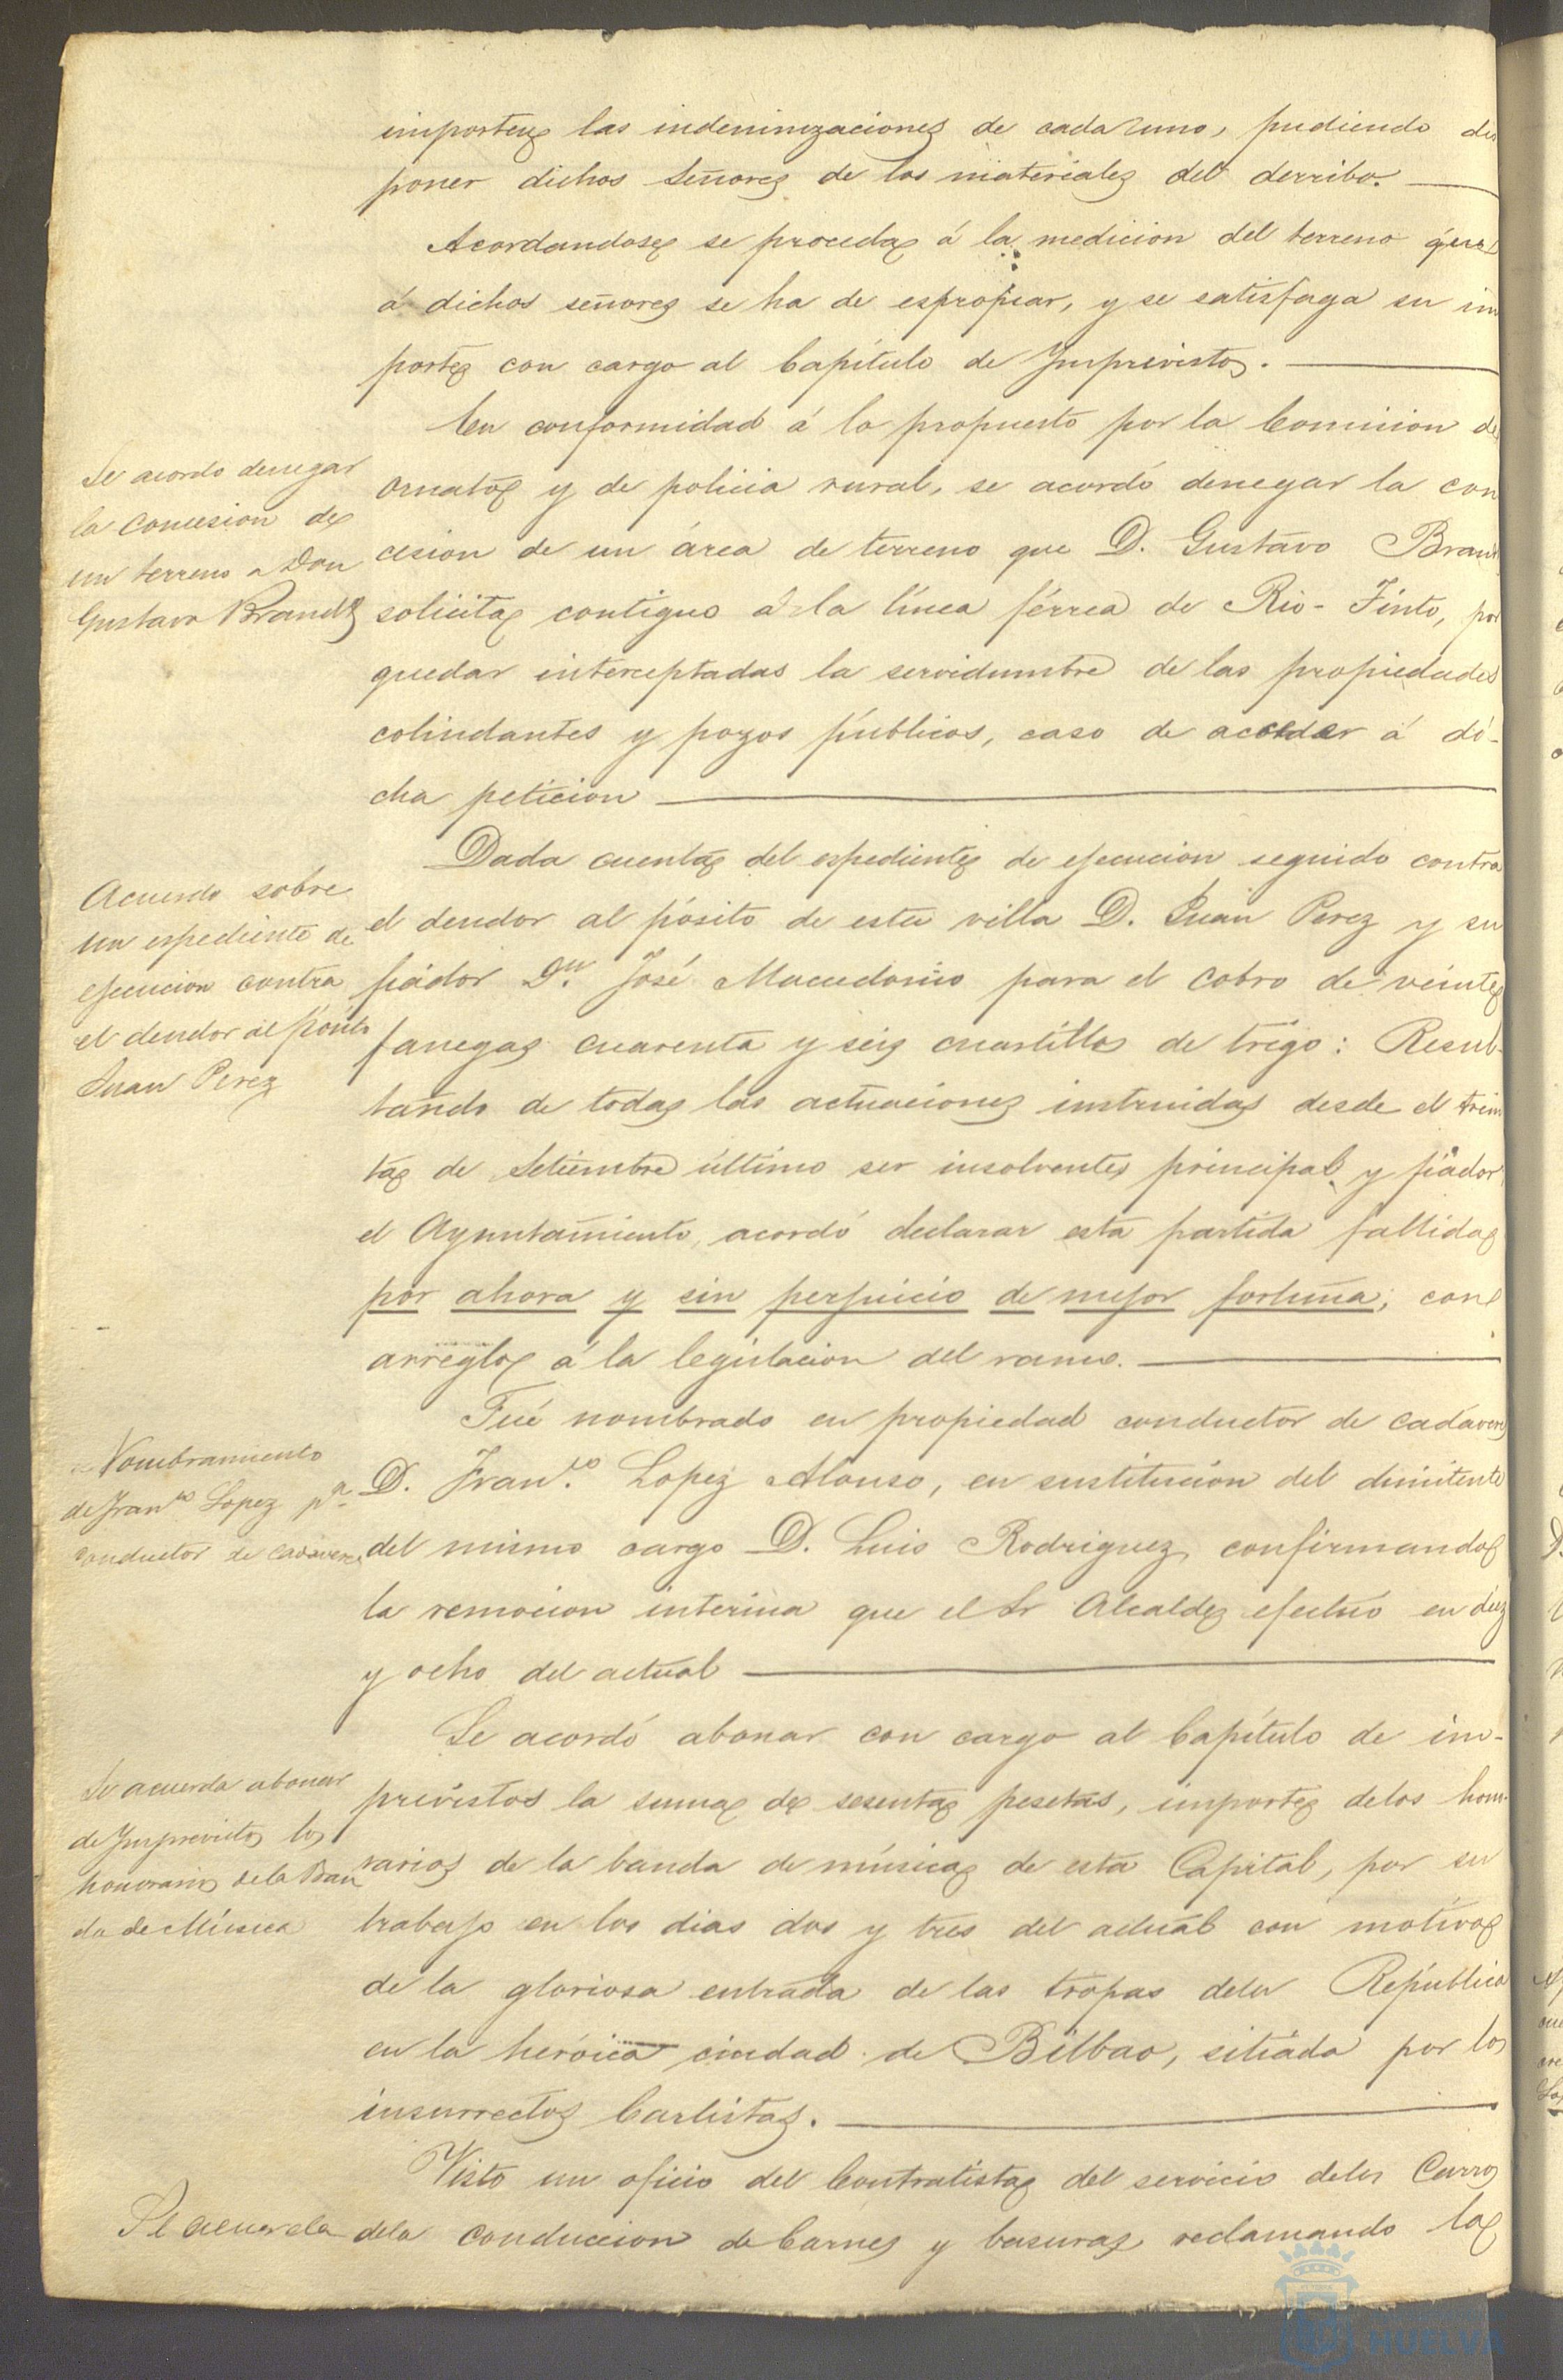 importen las indeminizaciones de cada uno, pudiendo dis
poner dichos Señores de los materiales del derribo.
Acordandose se proceda á la medicion del terreno que
á dichos señores se ha de espropiar, y se satisfaga su im
porte con cargo al Capítulo de Imprevistos.
En conformidad á lo propuesto por la Comision de
ornato y de policia rural, se acordó denegar la con
cesion de un área de terreno que D. Gustavo Brandt
solicita contiguo á la línea férrea de Rio-Tinto, por
quedar interceptadas la servidumbre de las propiedades
colindantes y pozos públicos, caso de acceder á di-
cha peticion
Se acordo denegar
la Concesion de
un terreno a Don
Gustavo Brandt
Dada cuenta del espediente de ejecucion seguido contra
el deudor al pósito de esta villa D. Juan Perez y su
fiador Dn. José Macedonio para el cobro de veinte
fanegas cuarenta y seis cuartillos de trigo: Resul-
tando de todas las actuaciones instruidas desde el trein
ta de Setiembre último ser insolventes principal y fiador,
el Ayuntamiento, acordó declarar esta partida fallida
por ahora y sin perjuicio de mejor fortuna, con
arreglo á la legislacion del ramo.
Acuerdo sobre
un espediente de
ejecucion contra
el deudor al pósito
Juan Perez
Fué nombrado en propiedad conductor de cadaveres
D. Franco. Lopez Alonso, en sustitucion del dimitente
del mismo cargo D. Luis Rodriguez, confirmando
la remocion interina que el Sr Alcalde efectuó en diez
y ocho del actual
Nombramiento
de Franco Lopez pa.
conductor de cadaveres
Se acordó abonar con cargo al Capítulo de im-
previstos la suma de sesenta pesetas, importe delos hono-
rarios de la banda de música de esta Capital, por su
trabajo en los dias dos y tres del actual con motivo
de la gloriosa entrada de las tropas dela República
en la heróica ciudad de Bilbao, sitiada por los
insurrectos Carlistas.
Se acuerda abonar
de Imprevistos los
honorarios dela Ban
da de Música
Visto un oficio del Contratista del servicio delos Carros
dela conduccion de Carnes y basuras, reclamando las
Se acuerda
HUELVA